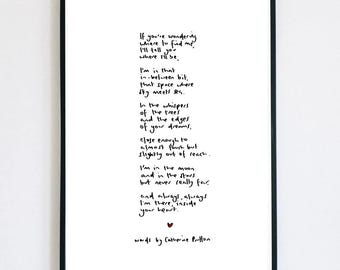 If you're wondering
where to find me,
I'll tell you
where I'll be.
I'm in that
in-between bit,
that space where
sky meets sea.
In the whispers
of the trees
and the edges
of your dreams.
Close enough to
almost touch but
slightly out of reach.
I'm in the moon
and in the stars
but never really far.
and always, always
I'm there, inside
your heart.
words by Catherine Prutton